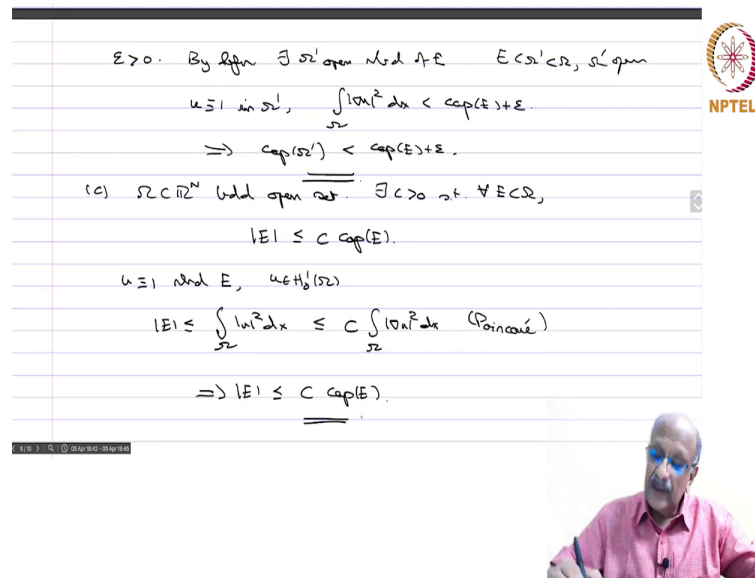 ε>0. By defn ∃ Ω' open nbd of E E⊂Ω'⊂Ω, Ω' open
u≡1 in Ω', ∫_Ω |∇u|² dx < cap(E)+ε.
⇒ cap(Ω') < cap(E)+ε.
(c) Ω⊂ℝᴺ bdd open set. ∃ C>0 s.t. ∀ E⊂Ω,
|E| ≤ C cap(E).
u≡1 nbd E, u∈H₀¹(Ω)
|E| ≤ ∫_Ω |u|² dx ≤ C ∫_Ω |∇u|² dx (Poincaré)
⇒ |E| ≤ C cap(E).
NPTEL
5/10 05 Apr 18:42 - 05 Apr 18:45